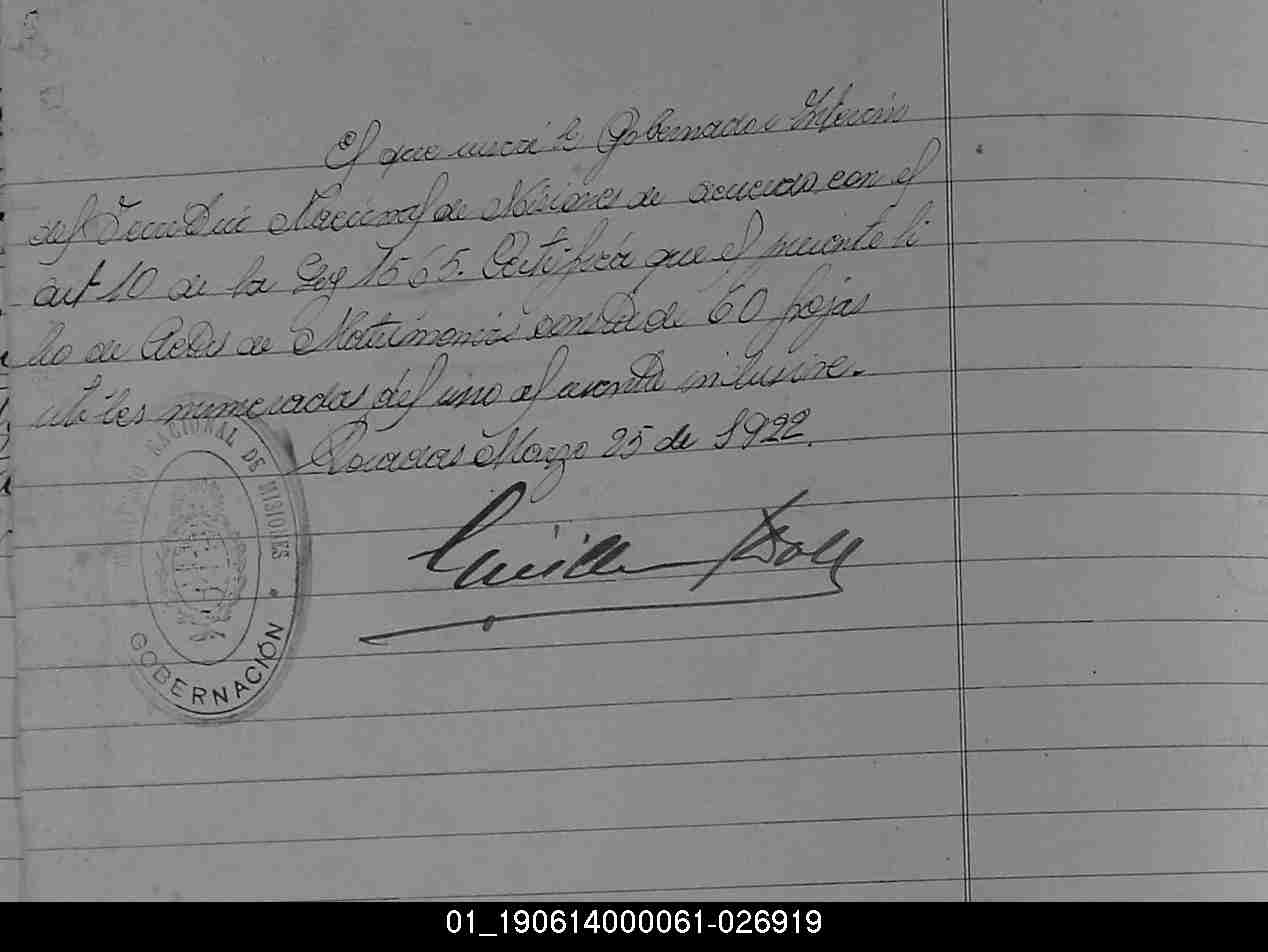 El que suscribe Gobernador Interino
del Territorio Nacional de Misiones de acuerdo con el
art 10 de la Ley 1565. Certifica que el presente li
bro de Actas de Matrimonios consta de 60 fojas
utiles numeradas del uno al inclusive.
Posadas Marzo 25 de 1922.
NACIONAL DE MISIONES
GOBERNACIÓN
01_190614000061-026919